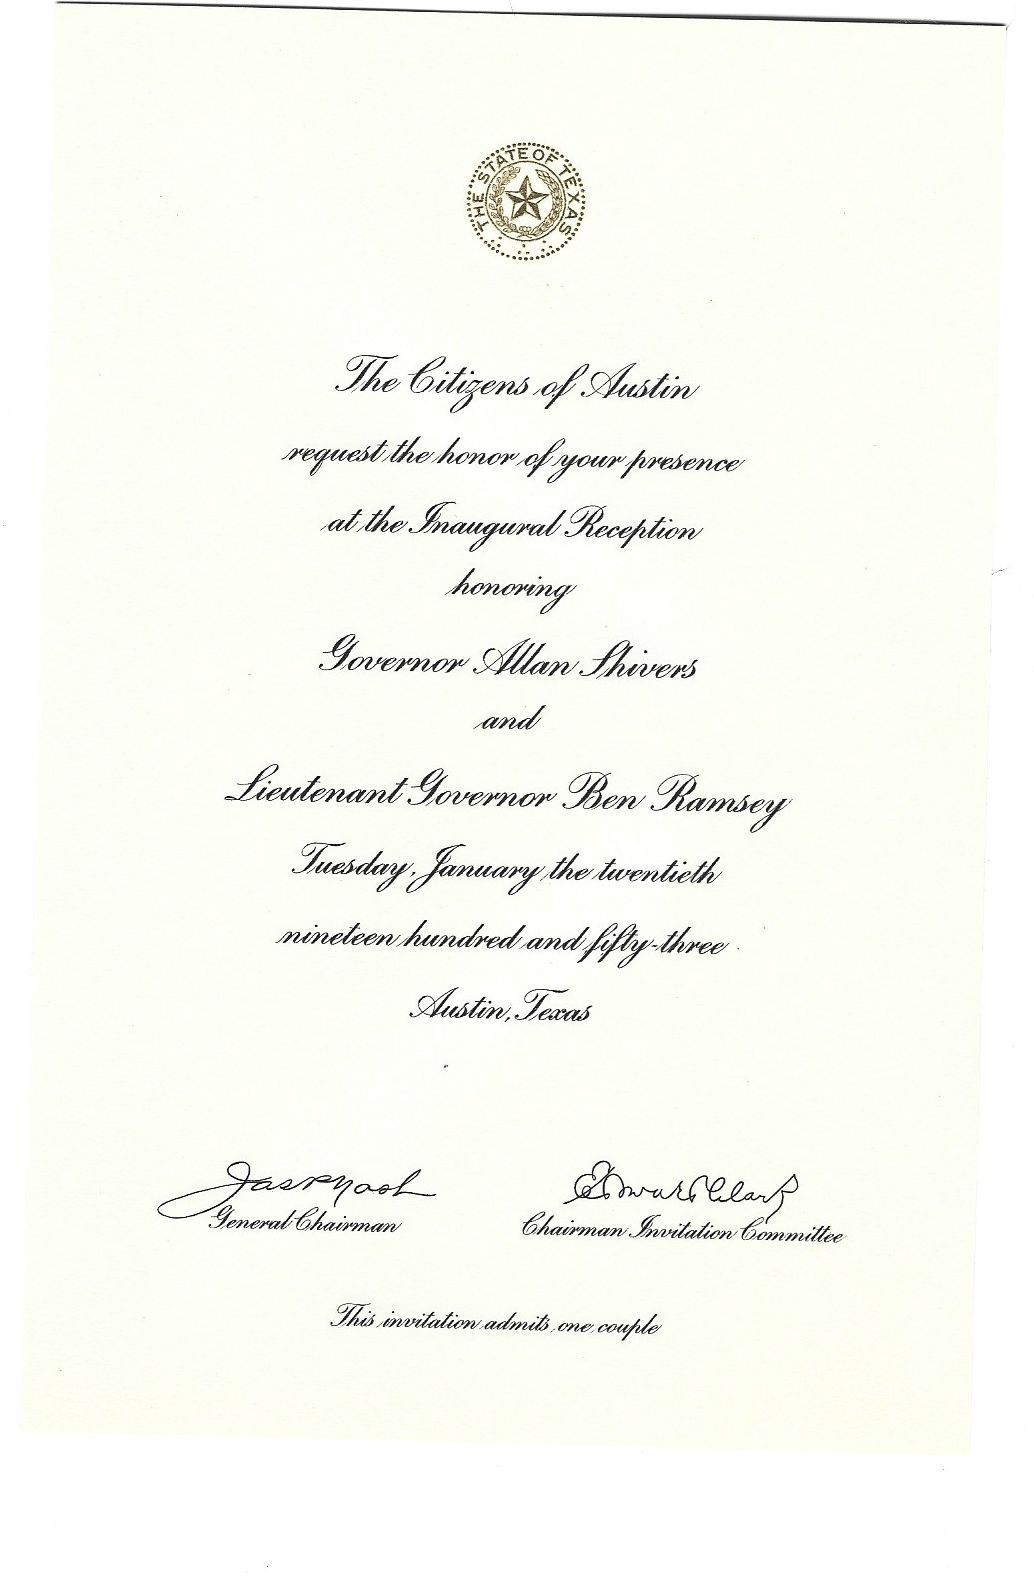 THE STATE OF TEXAS
The Citizens of Austin
request the honor of your presence
at the Inaugural Reception
honoring
Governor Allan Shivers
and
Lieutenant Governor Ben Ramsey
Tuesday, January the twentieth
nineteen hundred and fifty-three
Austin, Texas
Jas P Nash
Edward Clark
General Chairman
Chairman Invitation Committee
This invitation admits one couple